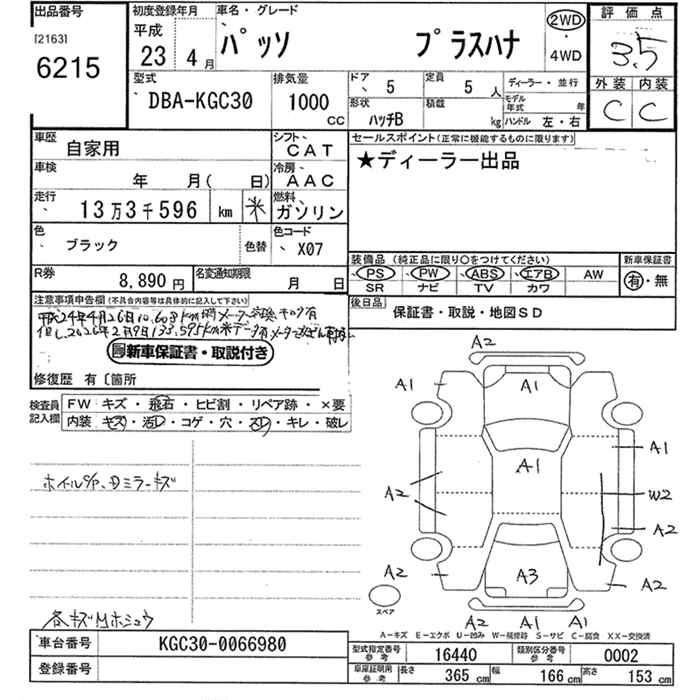 出品番号
[2163]
6215
初度登録年月
平成
23 4月
車名・グレード
パッソ プラスハナ
2WD
・
4WD
評価点
3.5
外装 内装
C C
型式
DBA-KGC30
排気量
1000
CC
ドア 5
形状 ハッチB
定員 5 人
積載 kg
ディーラー・並行
モデル年式 年
ハンドル 左・右
車歴 自家用
シフト CAT
車検 年 月( 日)
冷房 AAC
走行 13万3千596 km ※
燃料 ガソリン
色 ブラック
色替
色コード X07
R券 8,890円
名変通知期限 月 日
セールスポイント(正常に機能するものに限ります)
★ディーラー出品
装備品(純正品に限り○をつけてください)
PS PW ABS エアB AW
SR ナビ TV カワ
新車保証書
有・無
後日品 保証書・取説・地図SD
注意事項申告欄(不具合内容等は具体的に記入して下さい)
平成24年4月26日10,608km時メーター交換 有
2026年2月9日133,595km
新車保証書・取説付き
修復歴 有〔箇所
検査員記入欄
FW キズ・飛石・ヒビ割・リペア跡・×要
内装 キズ・汚レ・コゲ・穴・スレ・キレ・破レ
ミラーキズ
各キズ
A2
A1 A1
A1
A1
A2 W2
A2
A2 A3 A2
スペア
A2 A1 A1
A-キズ E-エクボ U-凹み W-補修跡 S-サビ C-腐食 XX-交換済
車台番号 KGC30-0066980
登録番号
型式指定番号 参考 16440
類別区分番号 参考 0002
車庫証明用 参考 長さ 365 cm 幅 166 cm 高さ 153 cm